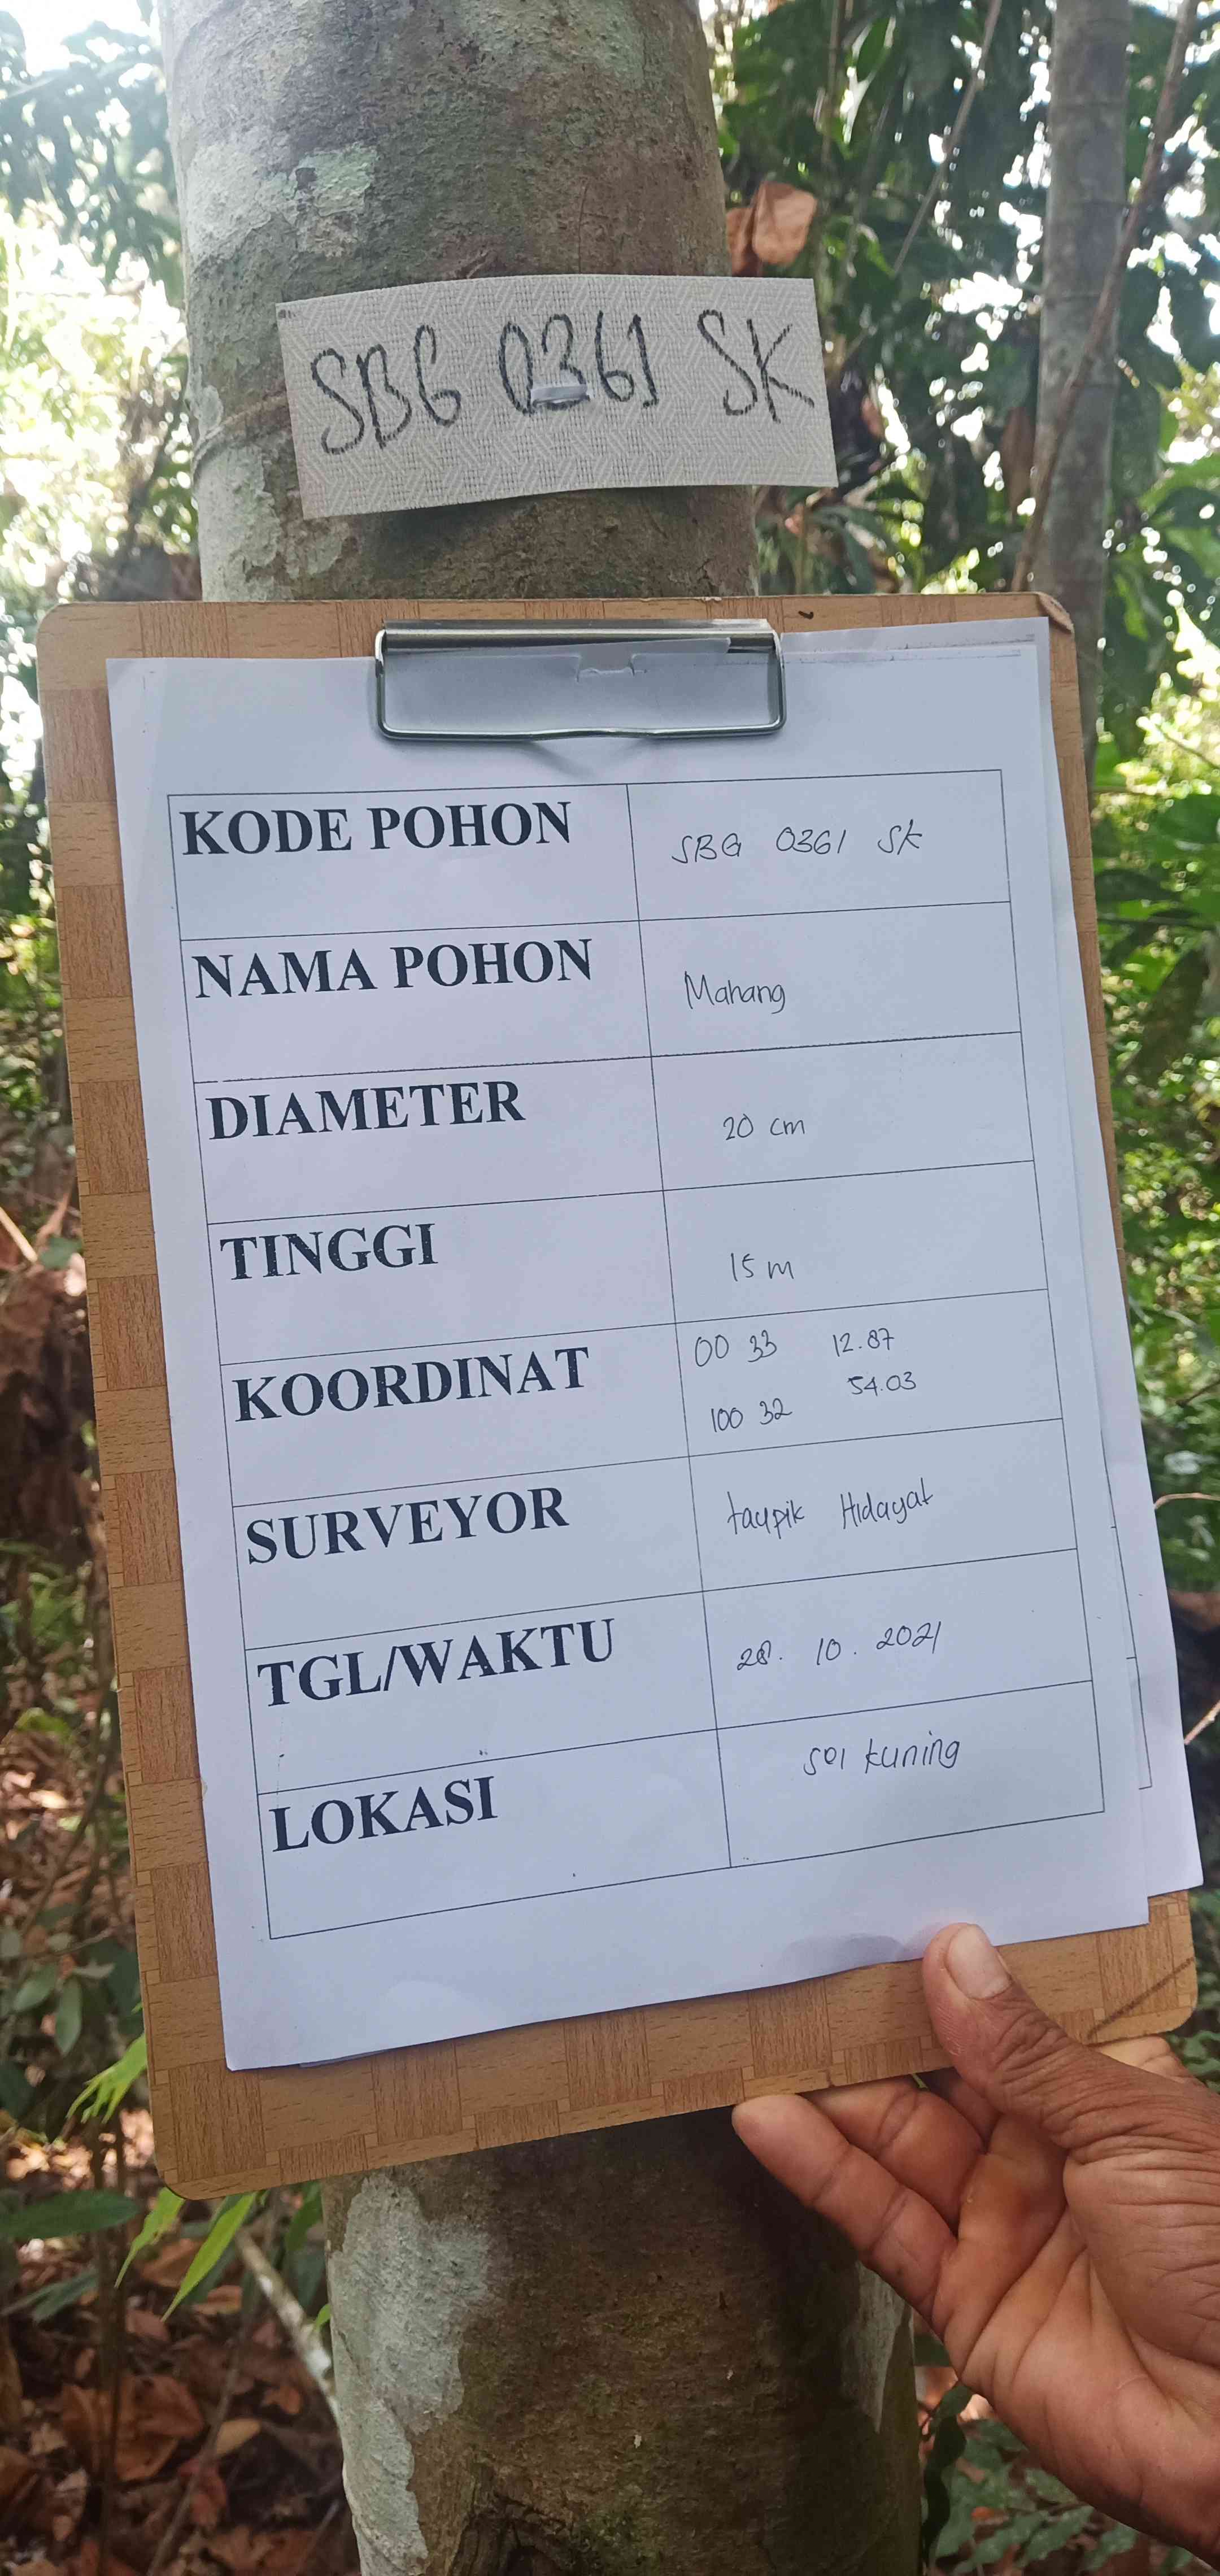 SBG 0361 SK
KODE POHON SBG 0361 SK
NAMA POHON Mahang
DIAMETER 20 cm
TINGGI 15 m
KOORDINAT 00 33 12.87
100 32 54.03
SURVEYOR taupik Hidayat
TGL/WAKTU 28. 10. 2021
LOKASI sei kuning